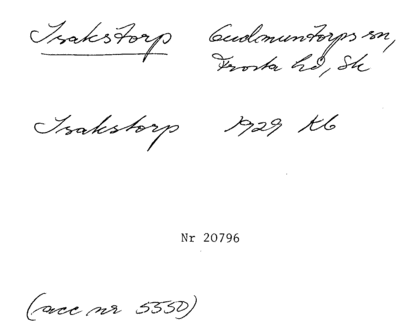 Isakstorp Gudmuntorps sn,
Frosta hd, Sk
Isakstorp 1929 Kb
Nr 20796
(acc nr 5550)